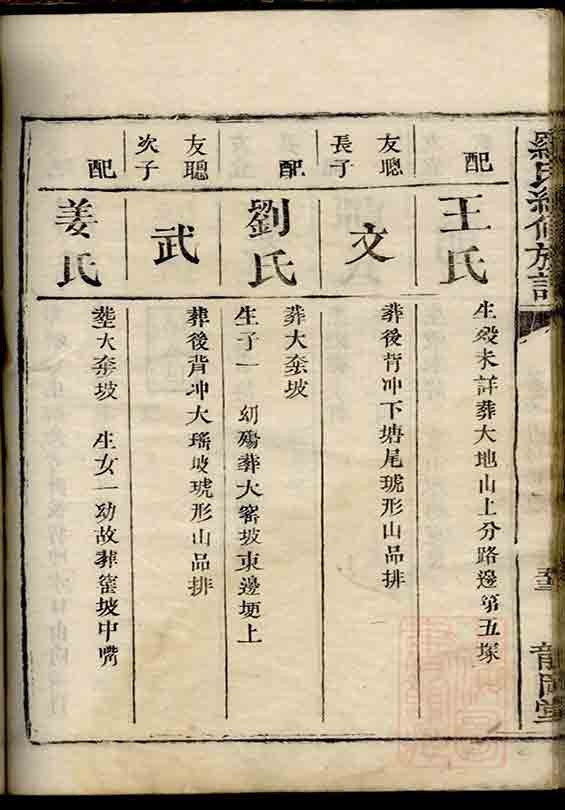 羅氏續修族譜
龍岡堂
配
王氏
生歿未詳葬大地山上分路邊第五塚
友聰
長子
文
葬後背冲下塘尾琥形山品排
配
劉氏
葬大坡
生子一 幼殤葬大窰坡東邊埂上
友聰
次子
武
葬後背冲大瑤坡琥形山品排
配
姜氏
塟大坡 生女一幼故葬窰坡中嘴